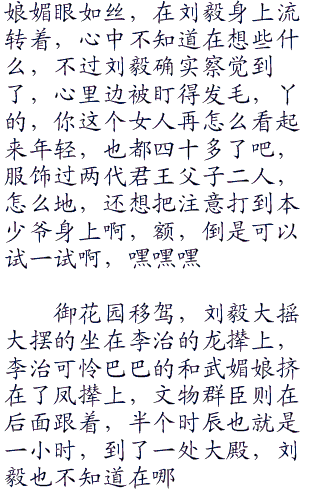 娘媚眼如丝，在刘毅身上流
转着，心中不知道在想些什
么，不过刘毅确实察觉到
了，心里边被盯得发毛，丫
的，你这个女人再怎么看起
来年轻，也都四十多了吧，
服饰过两代君王父子二人，
怎么地，还想把注意打到本
少爷身上啊，额，倒是可以
试一试啊，嘿嘿嘿
御花园移驾，刘毅大摇
大摆的坐在李治的龙撵上，
李治可怜巴巴的和武媚娘挤
在了凤撵上，文物群臣则在
后面跟着，半个时辰也就是
一小时，到了一处大殿，刘
毅也不知道在哪